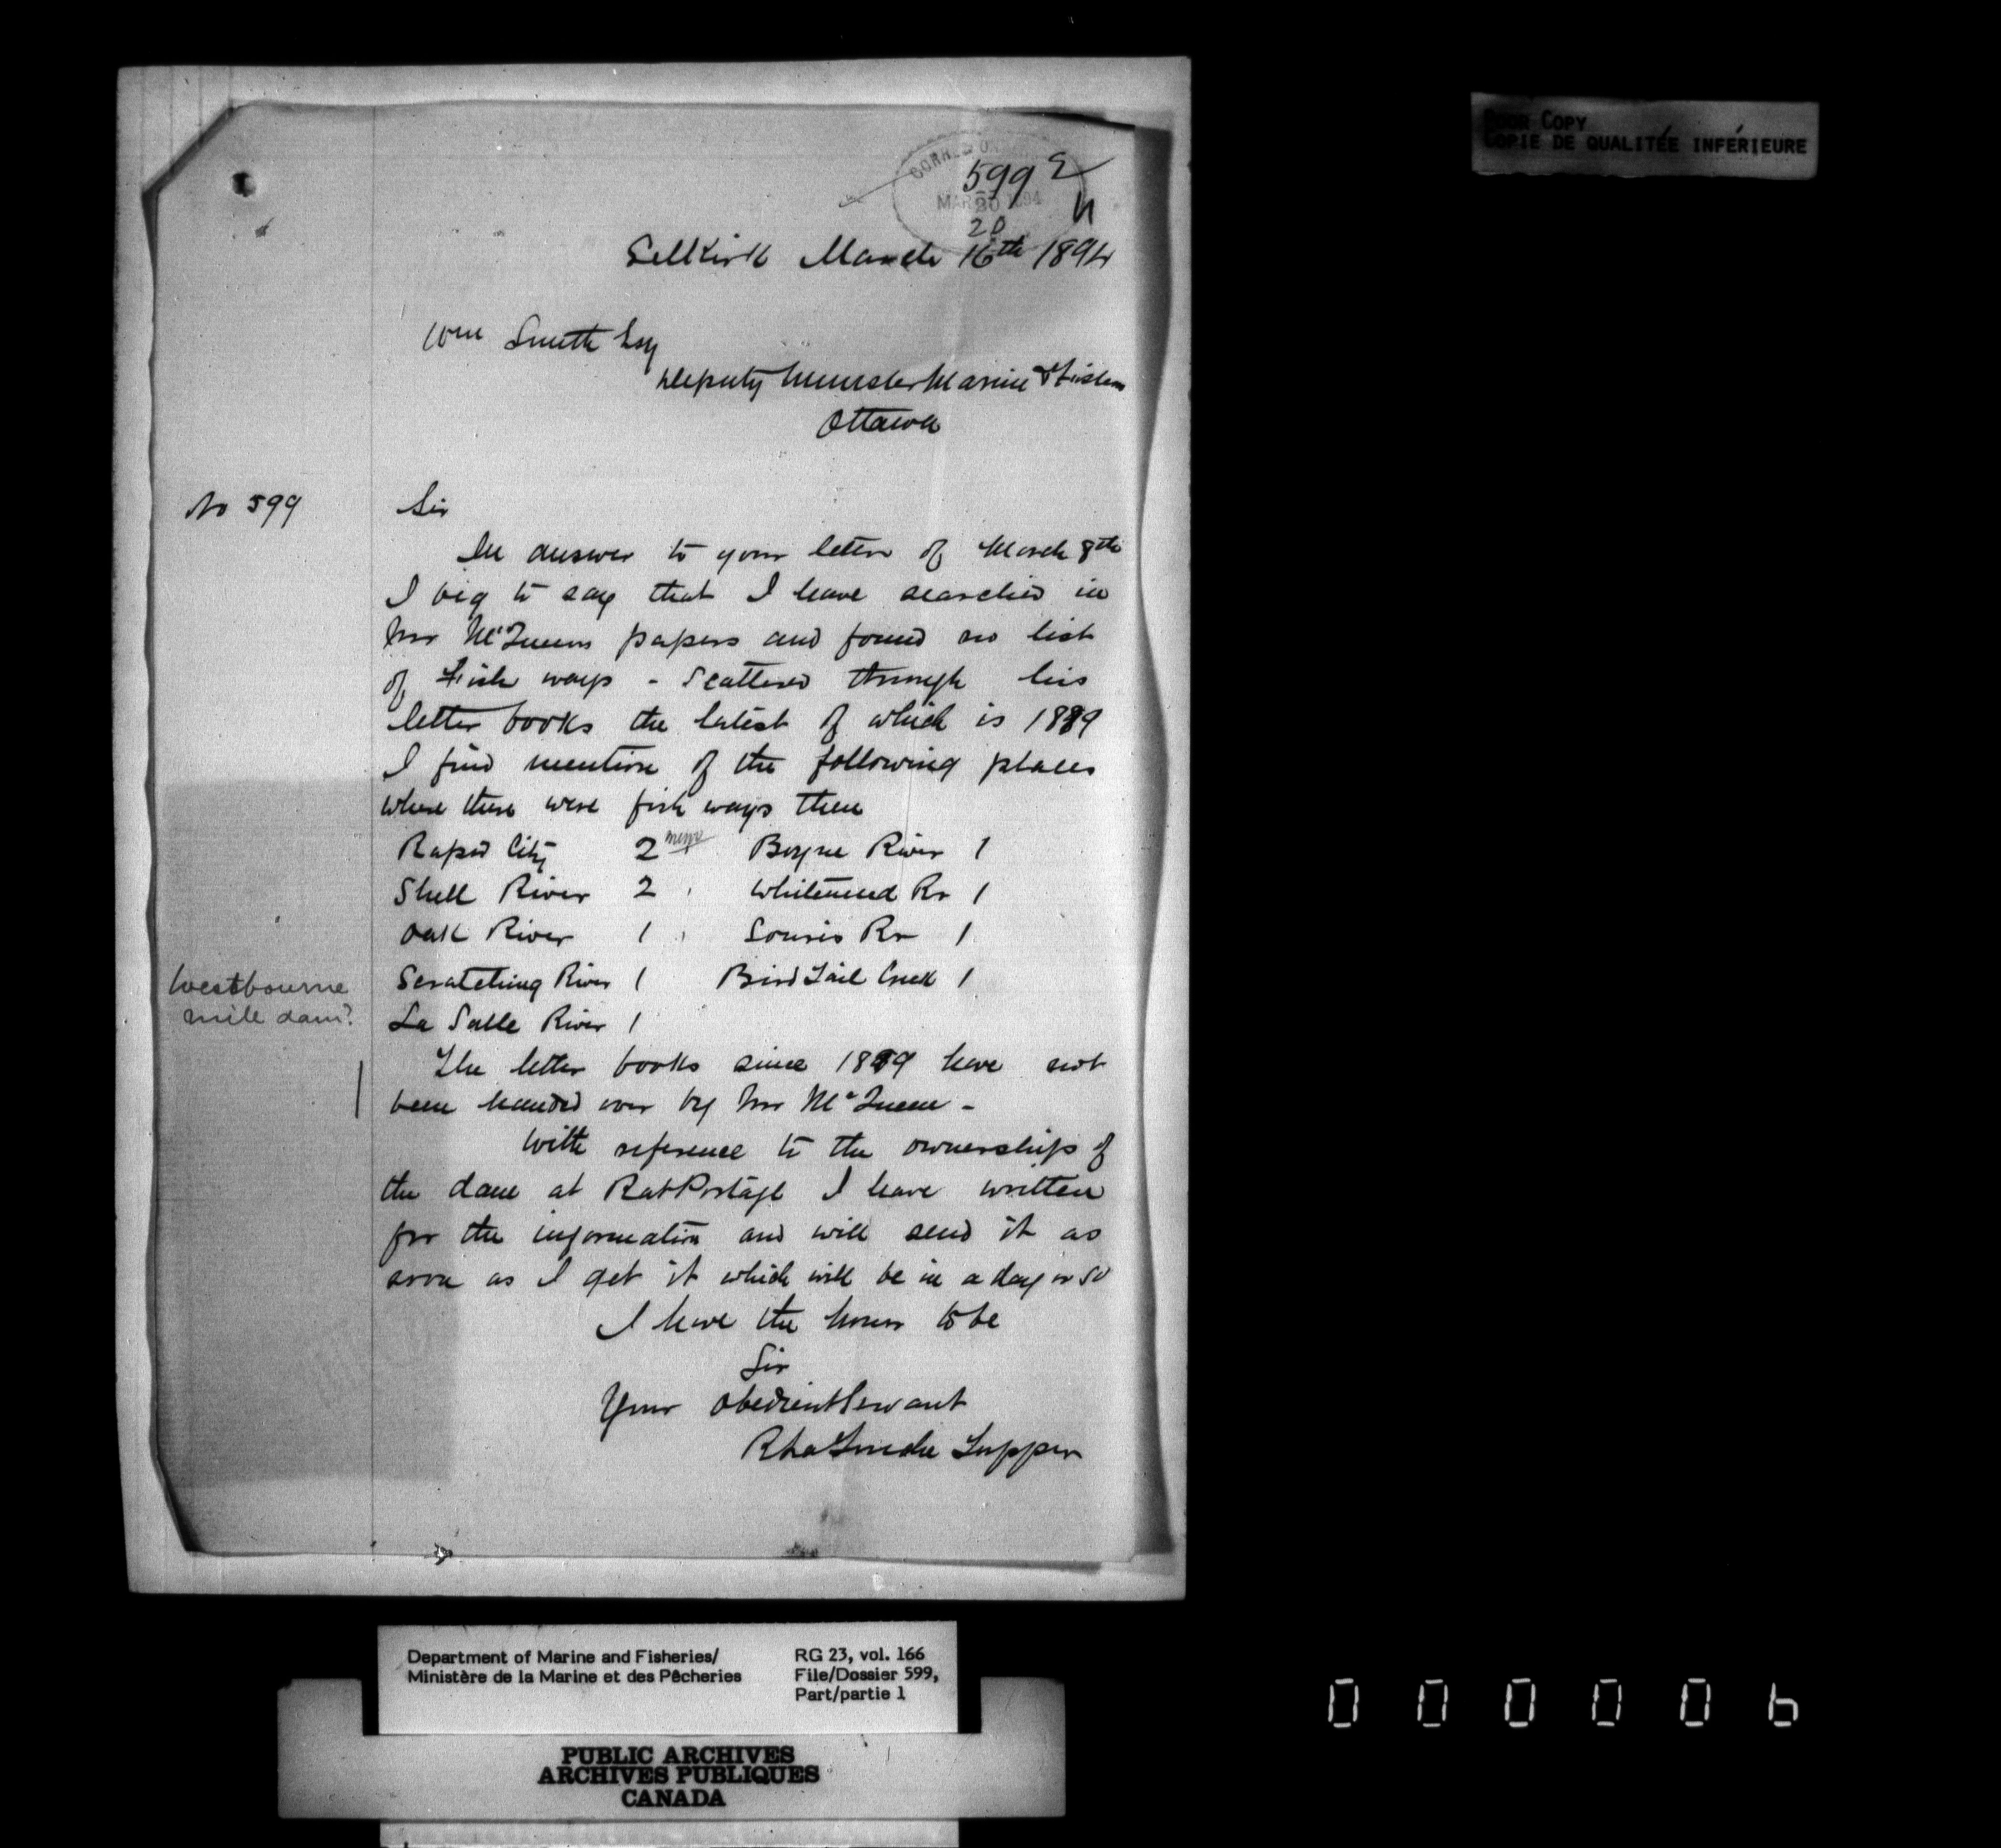 POOR COPY
COPIE DE QUALITÉE INFÉRIEURE
599
MAR 20 1894
20
Selkirk March 16th 1894
Wm Smith Esq
Deputy Minister Marine & Fisheries
Ottawa
No 599
Sir
In answer to your letter of March 8th
I beg to say that I have searched in
Mr McQueens papers and found no list
of Fish ways - Scattered through his
letter books the latest of which is 1889
I find mention of the following places
where there were fish ways then
Rapid City 2 Boyne River 1
Shell River 2 Whitemud Rr 1
Oak River 1 Souris Rr 1
Scratching River 1 Bird Tail Creek 1
Westbourne
mill dam?
La Salle River 1
The letter books since 1889 have not
been handed over by Mr McQueen -
With reference to the ownership of
the dam at Rat Portage I have written
for the information and will send it as
soon as I get it which will be in a day or so
I have the honor to be
Sir
Your obedient Servant
Tupper
Department of Marine and Fisheries/
Ministère de la Marine et des Pêcheries
RG 23, vol. 166
File/Dossier 599,
Part/partie 1
PUBLIC ARCHIVES
ARCHIVES PUBLIQUES
CANADA
000006